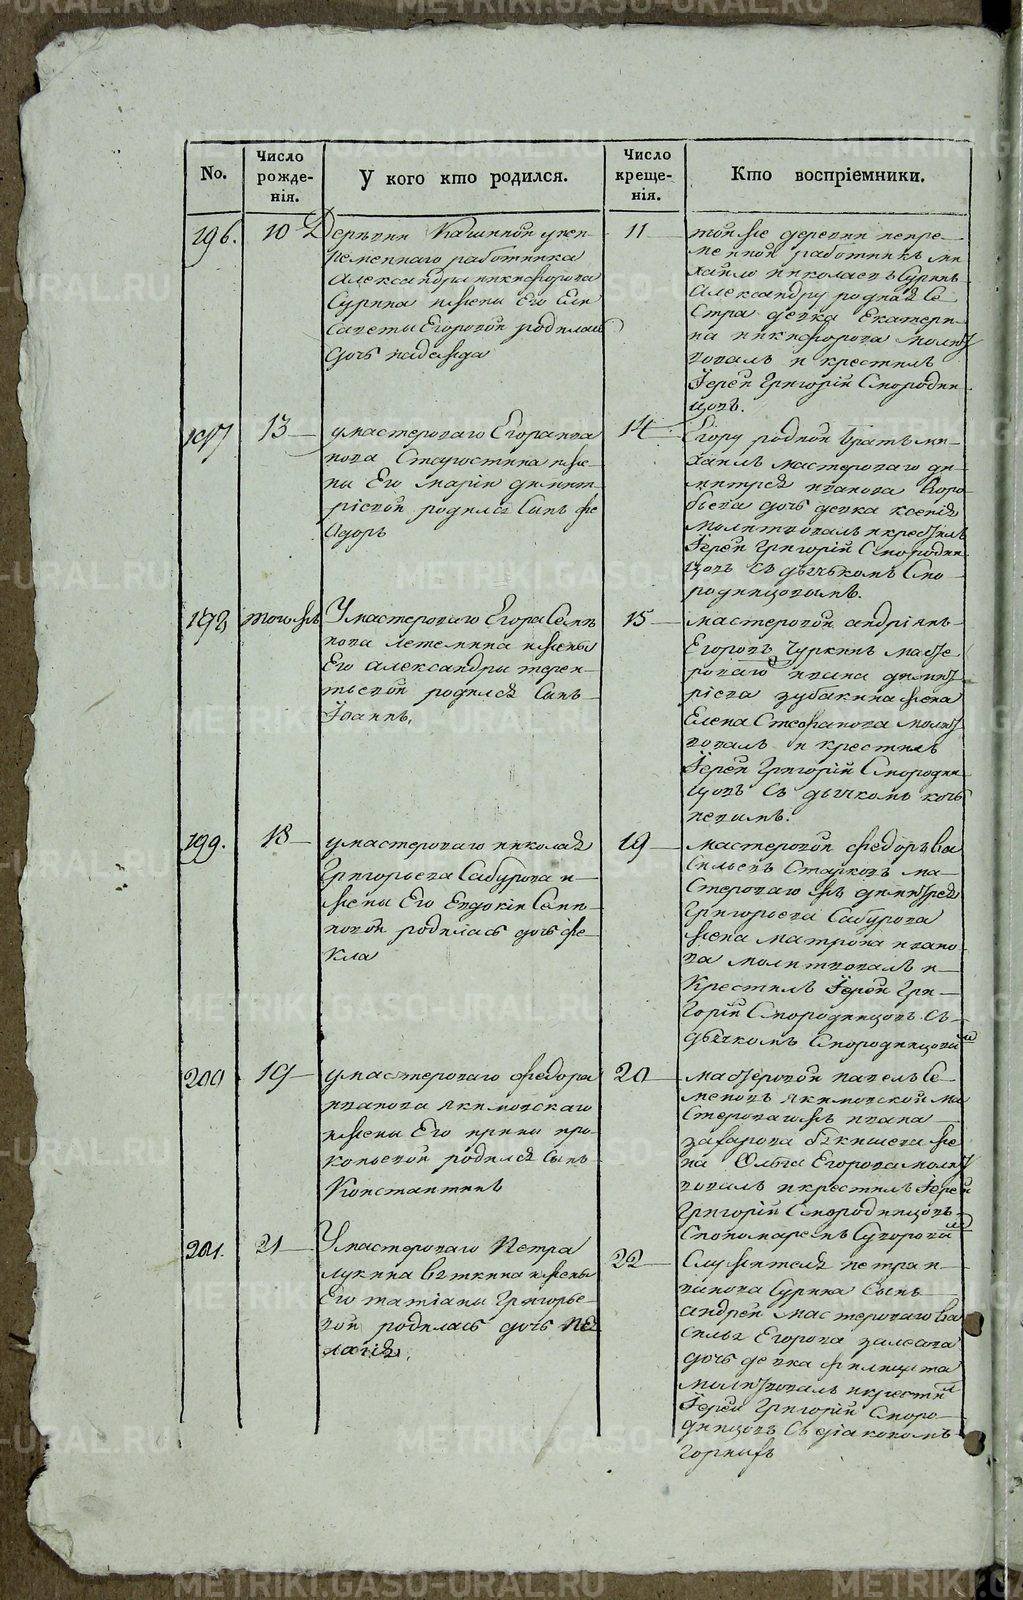 No.
Число рожде-нія.
У кого кто родился.
Число креще-нія.
Кто воспріемники.
196.
10
Деревни Кашиной у неп-
ременнаго работника
Александра никифорова
Сурина и жены Его Ели
саветы Егоровой родилась
дочь надежда
11
той же деревни непре-
менной работникъ ми
хайло николаевъ Суринъ
Александру родная Се
стра девка Екатери-
на никифорова молит
вовалъ и крестилъ
Іерей Григорій Смородин
цовъ.
197
13
у мастероваго Егора ива
нова Старостина и же-
ны Его маріи димит-
ріевой родился Сынъ Фе
одоръ
14
Егору родной братъ ми-
хаилъ мастероваго ди-
митрея иванова Воро-
бьева дочь девка ксенія
молитвовалъ и крестилъ
Іерей Григорій Смородин
цовъ съ дьячькомъ Смо-
родинцовымъ.
198
тогожъ
У мастероваго Егора Семе
нова летемина и жены
Его александры терен-
тьевой родился Сынъ
Іоаннъ.
15
мастеровой андріянъ
Егоровъ Чуркинъ масте
роваго ивана димит
ріева зубакина жена
Елена Стефанова молит
вовалъ и крестилъ
Іерей Григорій Смородин
цовъ съ дьячкомъ коч
невымъ.
199.
18
у мастероваго николая
Григорьева Сабурова и
жены Его Евдокіи Семе-
новой родилась дочь Фе-
кла
19
мастеровой Федоръ Ва
сильевъ Старковъ ма-
стероваго жъ димитрея
Григорьева Сабурова
жена матрона ивано-
ва молитвовалъ и
крестилъ Іерей Гри-
горій Смородинцовъ съ
дьячкомъ Смородинцовым
200
19
у мастероваго Федора
иванова якимовскаго
и жены Его ирины про-
копьевой родился Сынъ
Константинъ
20
мастеровой павелъ Се-
меновъ якимовской ма
стероваго жъ ивана
захарова бякишева же
на Ольга Егорова молит
вовалъ и крестилъ Іерей
Григорій Смородинцовъ
Спономаремъ Суворовым
201.
21
У мастероваго Петра
лукина Вяткина и жены
Его татіаны Григорье-
вой родилась дочь Пе
лагія.
22
Служителя петра и-
ванова Сурина Сынъ
андрей мастероваго Ва
силья Егорова залесова
дочь девка филицата
молитвовалъ и крестил
Іерей Григорій Сморо-
динцовъ Съ діакономъ
горныхъ